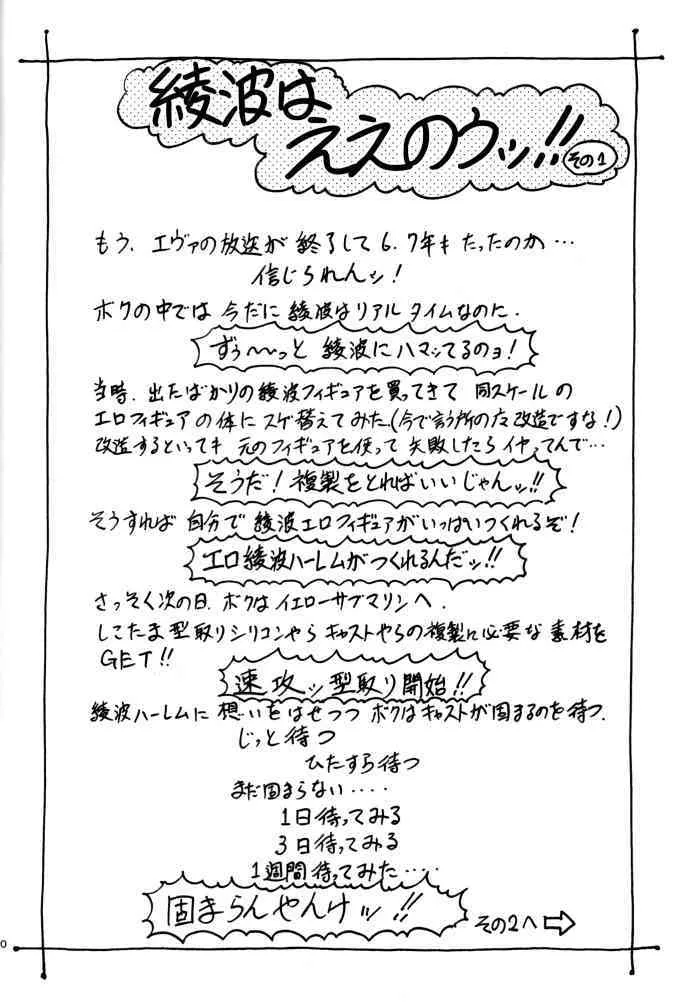 綾波は
ええのウッ!!
その1
もう、エヴァの放送が終了して6.7年もたったのか…
信じられんッ!
ボクの中では今だに綾波はリアルタイムなのに.
ずぅ〜〜っと綾波にハマってるのョ!
当時.出たばかりの綾波フィギュアを買ってきて同スケールの
エロフィギュアの体にスゲ替えてみた.(今で言う所の左改造ですな!)
改造するといっても元のフィギュアを使って失敗したらイヤってんで…
そうだ!複製をとればいいじゃんッ!!
そうすれば自分で綾波エロフィギュアがいっぱいつくれるぞ!
エロ綾波ハーレムがつくれるんだッ!!
さっそく次の日.ボクはイエローサブマリンへ.
しこたま型取りシリコンやらキャストやらの複製に必要な素材を
GET!!
速攻ッ型取り開始!!
綾波ハーレムに想いをはせつつボクはキャストが固まるのを待つ.
じっと待つ
ひたすら待つ
まだ固まらない‥‥
1日待ってみる
3日待ってみる
1週間待ってみた‥‥
固まらんやんけッ!!
その2へ⇨
0